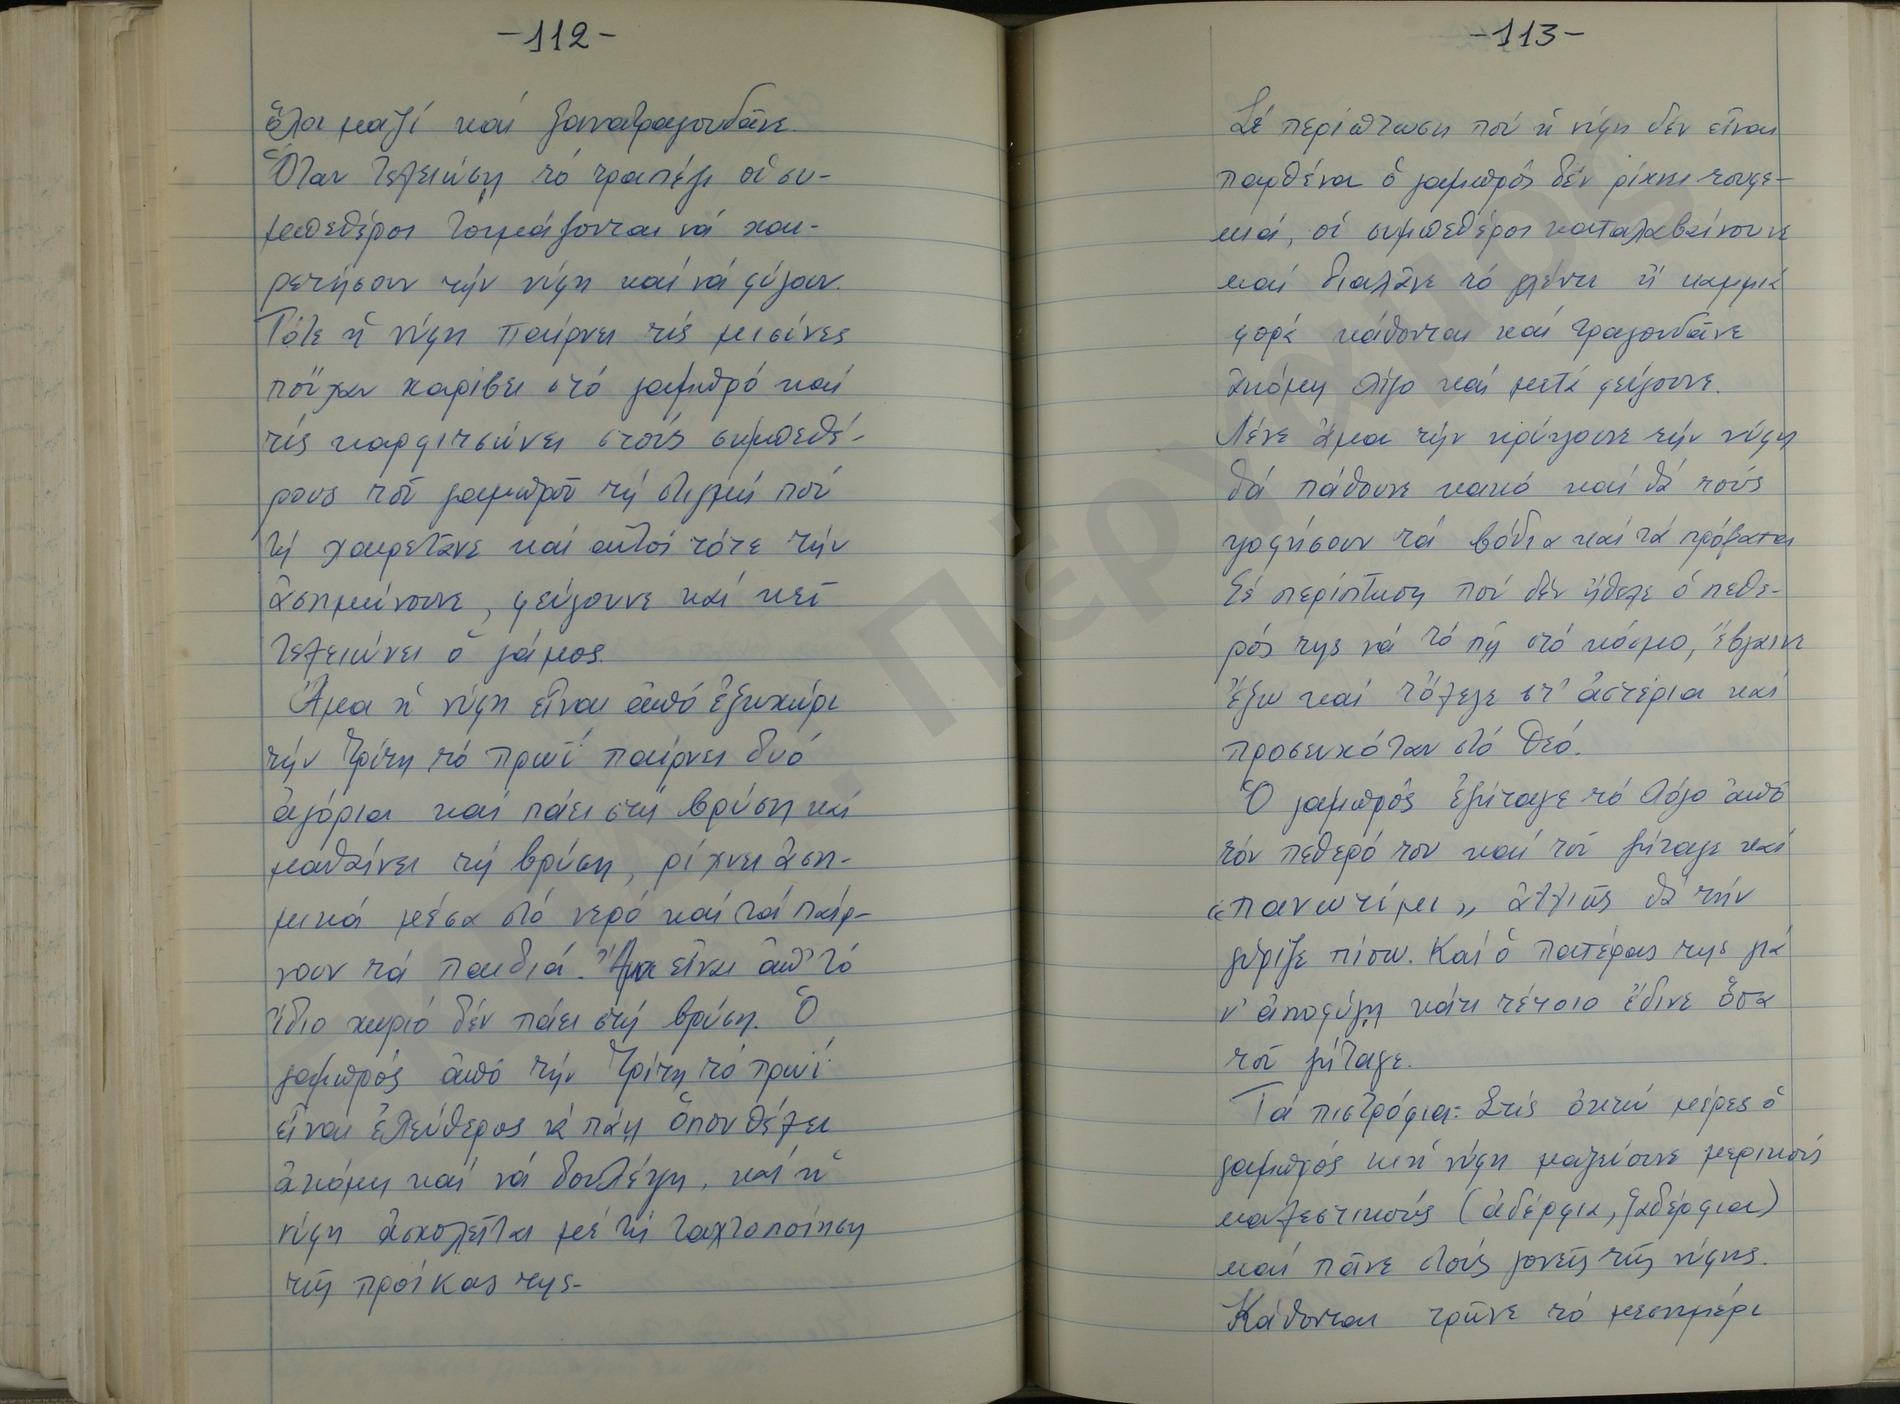 -112-
ὅλοι μαζί καί ξανατραγουδᾶνε.
Ὅταν τελειώση τό τραπέζι οἱ συ-
μπεθέροι τοιμάζονται νά χαι-
ρετήσουν τήν νύφη καί νά φύγουν.
Τότε ἡ νύφη παίρνει τίς μεσίνες
πού χαρίσει στό γαμπρό καί
τίς καρφιτσώνει στούς συμπεθέ-
ρους τοῦ γαμπροῦ τή στιγμή πού
τή χαιρετᾶνε καί αὐτοί τότε τήν
ἀσημώνουνε, φεύγουνε καί κεῖ
τελειώνει ὁ γάμος.
Ἅμα ἡ νύφη εἶναι ἀπό ἐξωχώρι
τήν Τρίτη τό πρωΐ παίρνει δυό
ἀγόρια καί πάει στή βρύση καί
μαθαίνει τή βρύση, ρίχνει ἀση-
μικά μέσα στό νερό καί τά παίρ-
νουν τά παιδιά. Ἅμα εἶναι ἀπ' τό
ἴδιο χωριό δέν πάει στή βρύση. Ὁ
γαμπρός ἀπό τήν Τρίτη τό πρωΐ
εἶναι ἐλεύθερος νά πάη ὅπου θέλει
ἀκόμη καί νά δουλέψη, καί ἡ
νύφη ἀσχολεῖται μέ τή ταχτοποίηση
τῆς προίκας της-
-113-
Σέ περίπτωση πού ἡ νύφη δέν εἶναι
παρθένα ὁ γαμπρός δέν ρίχνει τουφε-
κιά, οἱ συμπεθέροι καταλαβαίνουνε
καί διαλᾶνε τό γλέντι ἤ καμμιά
φορά κάθονται καί τραγουδᾶνε
ἀκόμη λίγο καί μετά φεύγουνε.
Λένε ἅμα τήν κρύψουνε τήν νύφη
θά πάθουνε κακό καί θά τούς
ψοφήσουν τά βόδια καί τά πρόβατα
Σέ περίπτωση πού δέν ἤθελε ὁ πεθε-
ρός της νά τό πῆ στό κόσμο, ἔβγαινε
ἔξω καί τόλεγε στ' ἀστέρια καί
προσευχόταν στό Θεό.
Ὁ γαμπρός ἐζήταγε τό λόγο ἀπό
τόν πεθερό του καί τοῦ ζήταγε καί
«πανωτίμι» ἀλλιῶς θά τήν
γύριζε πίσω. Καί ὁ πατέρας της γιά
ν' ἀποφύγη κάτι τέτοιο ἔδινε ὅσα
τοῦ ζήταγε.
Τά πιστρόφια: Στίς ὀκτώ μέρες ὁ
γαμπρός κι ἡ νύφη μαζεύουνε μερικούς
καλεστικούς (ἀδέρφια, ξαδέρφια)
καί πᾶνε στούς γονεῖς τῆς νύφης.
Κάθονται τρῶνε τό μεσημέρι